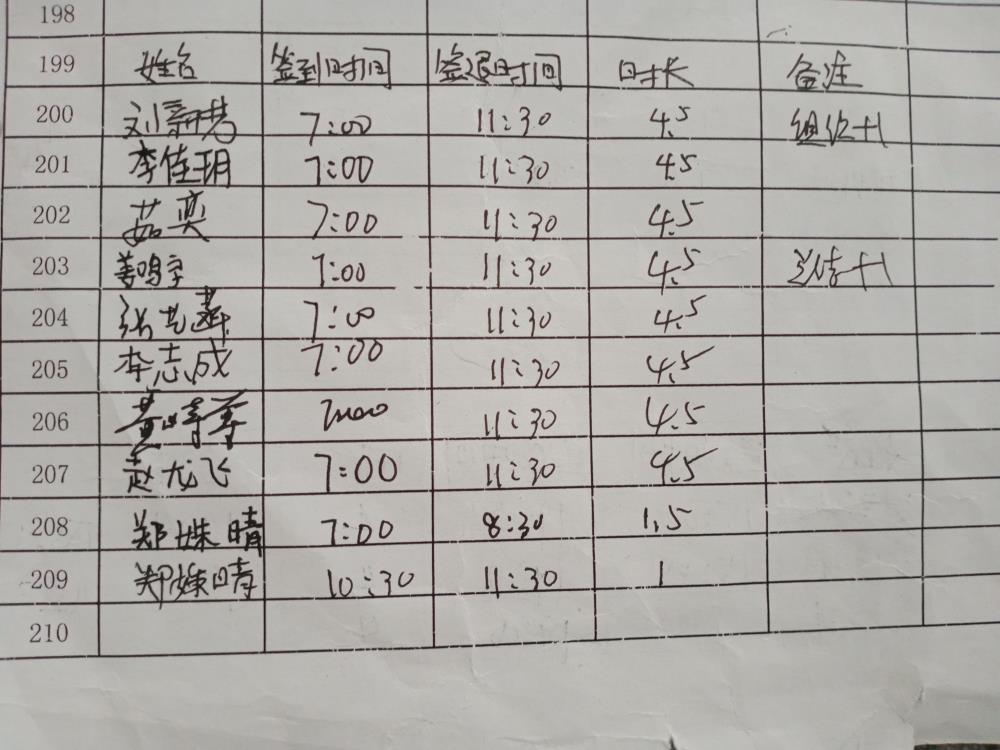 198
199 姓名 签到时间 签退时间 时长 备注
200 刘新 7:00 11:30 4.5 组织+1
201 李佳玥 7:00 11:30 4.5
202 茹奕 7:00 11:30 4.5
203 姜鸣宇 7:00 11:30 4.5 总结+1
204 张艺 7:00 11:30 4.5
205 李志成 7:00 11:30 4.5
206 黄 7:00 11:30 4.5
207 赵龙飞 7:00 11:30 4.5
208 郑姝晴 7:00 8:30 1.5
209 郑姝晴 10:30 11:30 1
210